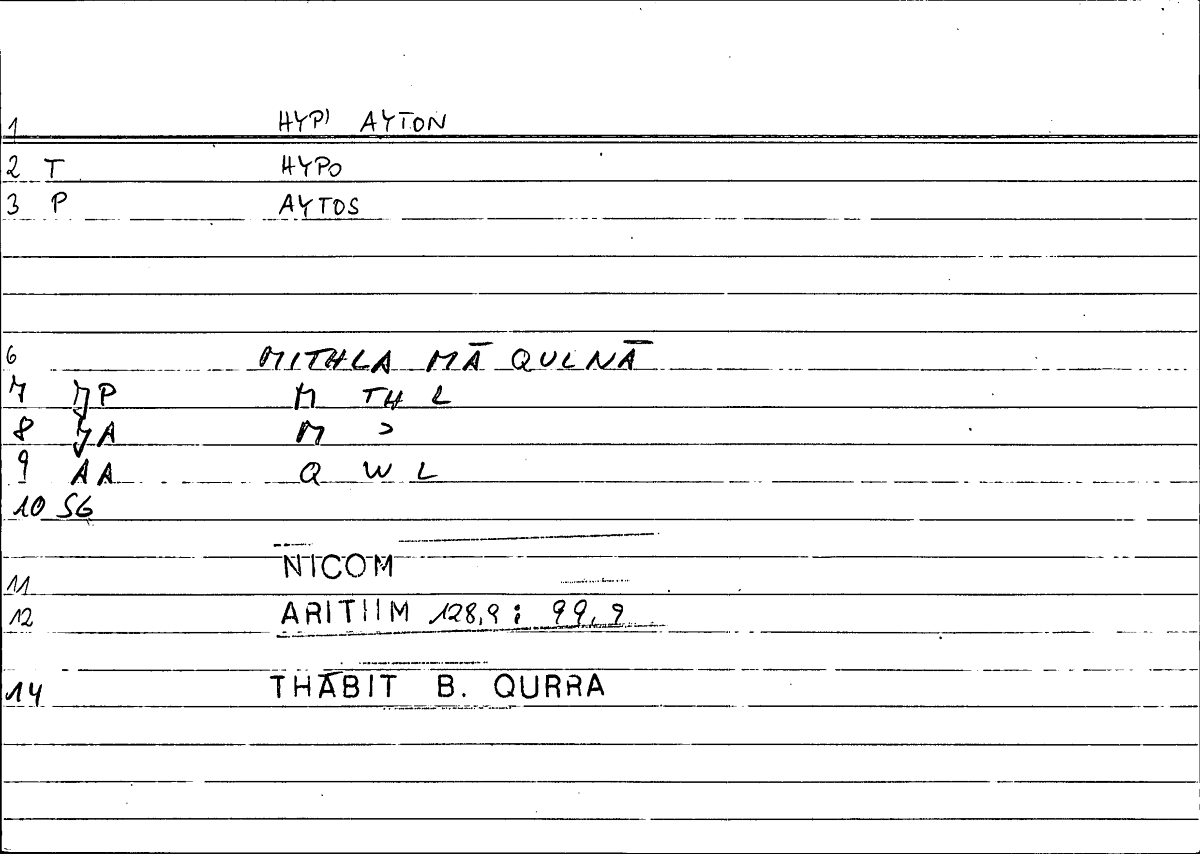 1 HYP' AYTON
2 T HYPO
3 P AYTOS
6 MITHLA MĀ QULNĀ
7 JP M TH L
8 JA M ɔ
9 AA Q W L
10 SG
11 NICOM
12 ARITHM 128,9 ; 99,9
14 THĀBIT B. QURRA